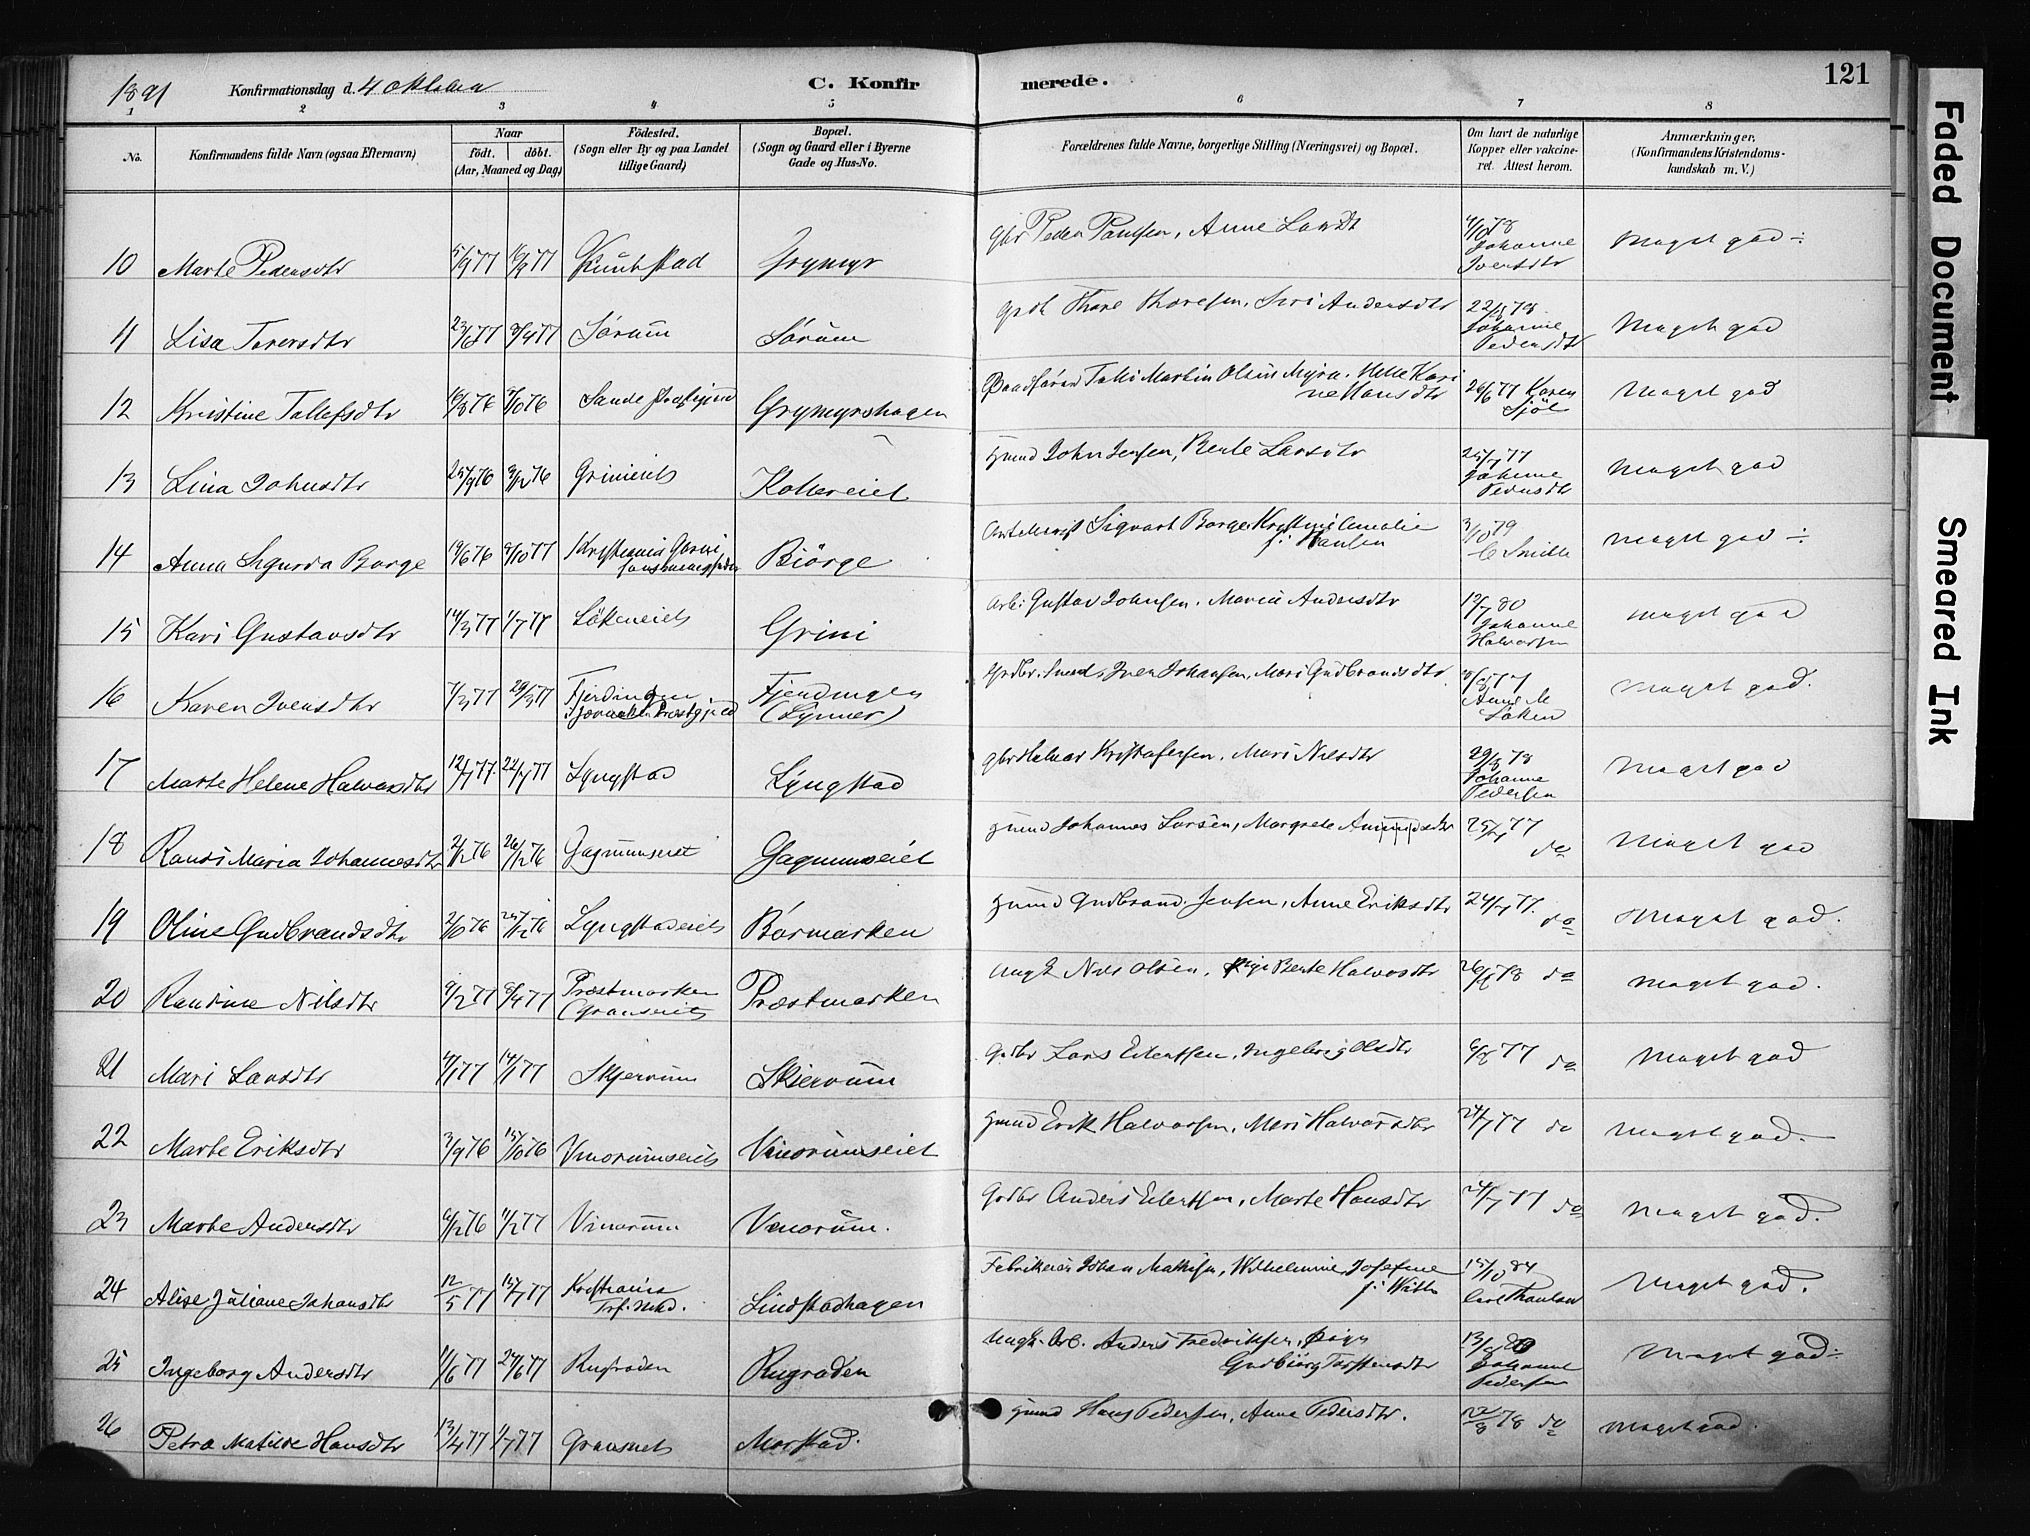 1891 Konfirmationsdag d. 4 oktober C. Konfir merede. 121
1 2 3 4 5 6 7 8
No. Konfirmandens fulde Navn (ogsaa Efternavn) Naar født. døbt. (Aar, Maaned og Dag) Fødested. (Sogn eller By og paa Landet tillige Gaard) Bopæl. (Sogn og Gaard eller i Byerne Gade og Hus-No. Forældrenes fulde Navne, borgerlige Stilling (Næringsvei) og Bopæl. Om havt de naturlige Kopper eller vakcineret. Attest herom. Anmærkninger. (Konfirmandens Kristendomskundskab m. V.)
10 Marte Pedersdtr 5/9 77 16/9 77 Grymyr Gbr Peder Paulsen, Anne Larsdt 4/10 78 Johanne Iversdtr Meget god ÷
11 Lisa Toresdtr Sørum Sørum Thore Thoresen, Siri Andersdtr 22/8 78 Johanne Pedersdtr Meget god
12 Kristine Tollefsdtr 16/8 76 8/10 76 Sande Præstegjeld Grymyrshagen Tolle Martin Olsen Myra, Helle Karine Hansdtr 26/6 77 Karen Sjöl Meget god
13 Lina Johnsdtr 25/9 76 3/12 76 Grinieiet Kollereiet Husmd John Jensen, Berte Larsdtr 25/7 77 Johanne Pedersdtr Meget god
14 Anna Sigurda Borge 19/6 76 8/10 77 Kristiania Garnisonsmenighed Bjørge Sigvart Borge, Kristine Amalie f: Hansen 3/10 79 C Smith Meget god ÷
15 Kari Gustavsdtr 14/3 77 1/7 77 Løkeneiet Grini Arb: Gustav Johnsen, Maria Andersdtr 12/7 80 Johanne Halvorsen Meget god
16 Karen Iversdtr 7/3 77 29/3 77 Fjerdingen Jævnaker Præstgjeld Fjerdingen (Lynner) Gbr. Smed, Iver Johansen, Mari Gudbrandsdtr Anne M Løken Meget god.
17 Marte Helene Halvorsdtr 12/1 77. Lyngstad Lyngstad Gbr Halvor Kristofersen, Mari Nilsdtr 29/8 78 Johanne Pedersen Meget god
18 Randi Maria Johannesdtr 2/12 76 26/12 76 Gagnumseiet Gagnumseiet Husmd Johannes Larsen, Margrete Amundsdtr 25/7 77 do Meget god
19 Oline Gudbrandsdtr 2/10 76 Lyngstadeiet Børmarken Husmd Gudbrand Jensen, Anne Eriksdtr 24/7 77. do Meget god.
20 Randine Nilsdtr 9/2 77 8/4 77 Præstmarken (Granseiet) Præstmarken Ungk Nils Olsen, Pige Berte Halvorsdtr 26/8 78 do Meget god.
21 Mari Larsdtr 4/1 77 14/1 77 Skjervum Skjervum Gbr Lars Eilertsen, Ingeborg Olsdtr 6/8 77 do Meget god
22 Marte Eriksdtr 3/9 76 15/10 76 Vinorumseiet Vinorumseiet Husmd Erik Halvorsen, Mari Halvorsdtr 24/7 77 do Meget god.
23 Marte Andersdtr 6/12 76 11/2 77 Vinorum Vinorum. Gbr Anders Eilertsen, Marte Hansdtr 24/7 77 do Meget god.
24 Alise Juliane Johansdtr 12/5 77 15/7 77 Kristiania Trf: Mkd. Lindstadhagen Fabrikeier Johan Mathisen, Wilhelmine Josefine f: Witte 15/10 84 Carl Thaulow Meget god.
25 Ingeborg Andersdtr 11/6 77 24/6 77 Rugraden Rugraden Ungk. Arb. Anders Fredriksen, Pige Gudbiørg Torstensdtr 13/8 80 Johanne Pedersen Meget god ÷
26 Petra Matilde Hansdtr 13/4 77 1/7 77 Granseiet Morstad. Husmd Hans Pedersen, Anne Pedersdtr. 22/8 78 do Meget god.
Faded Document
Smeared Ink